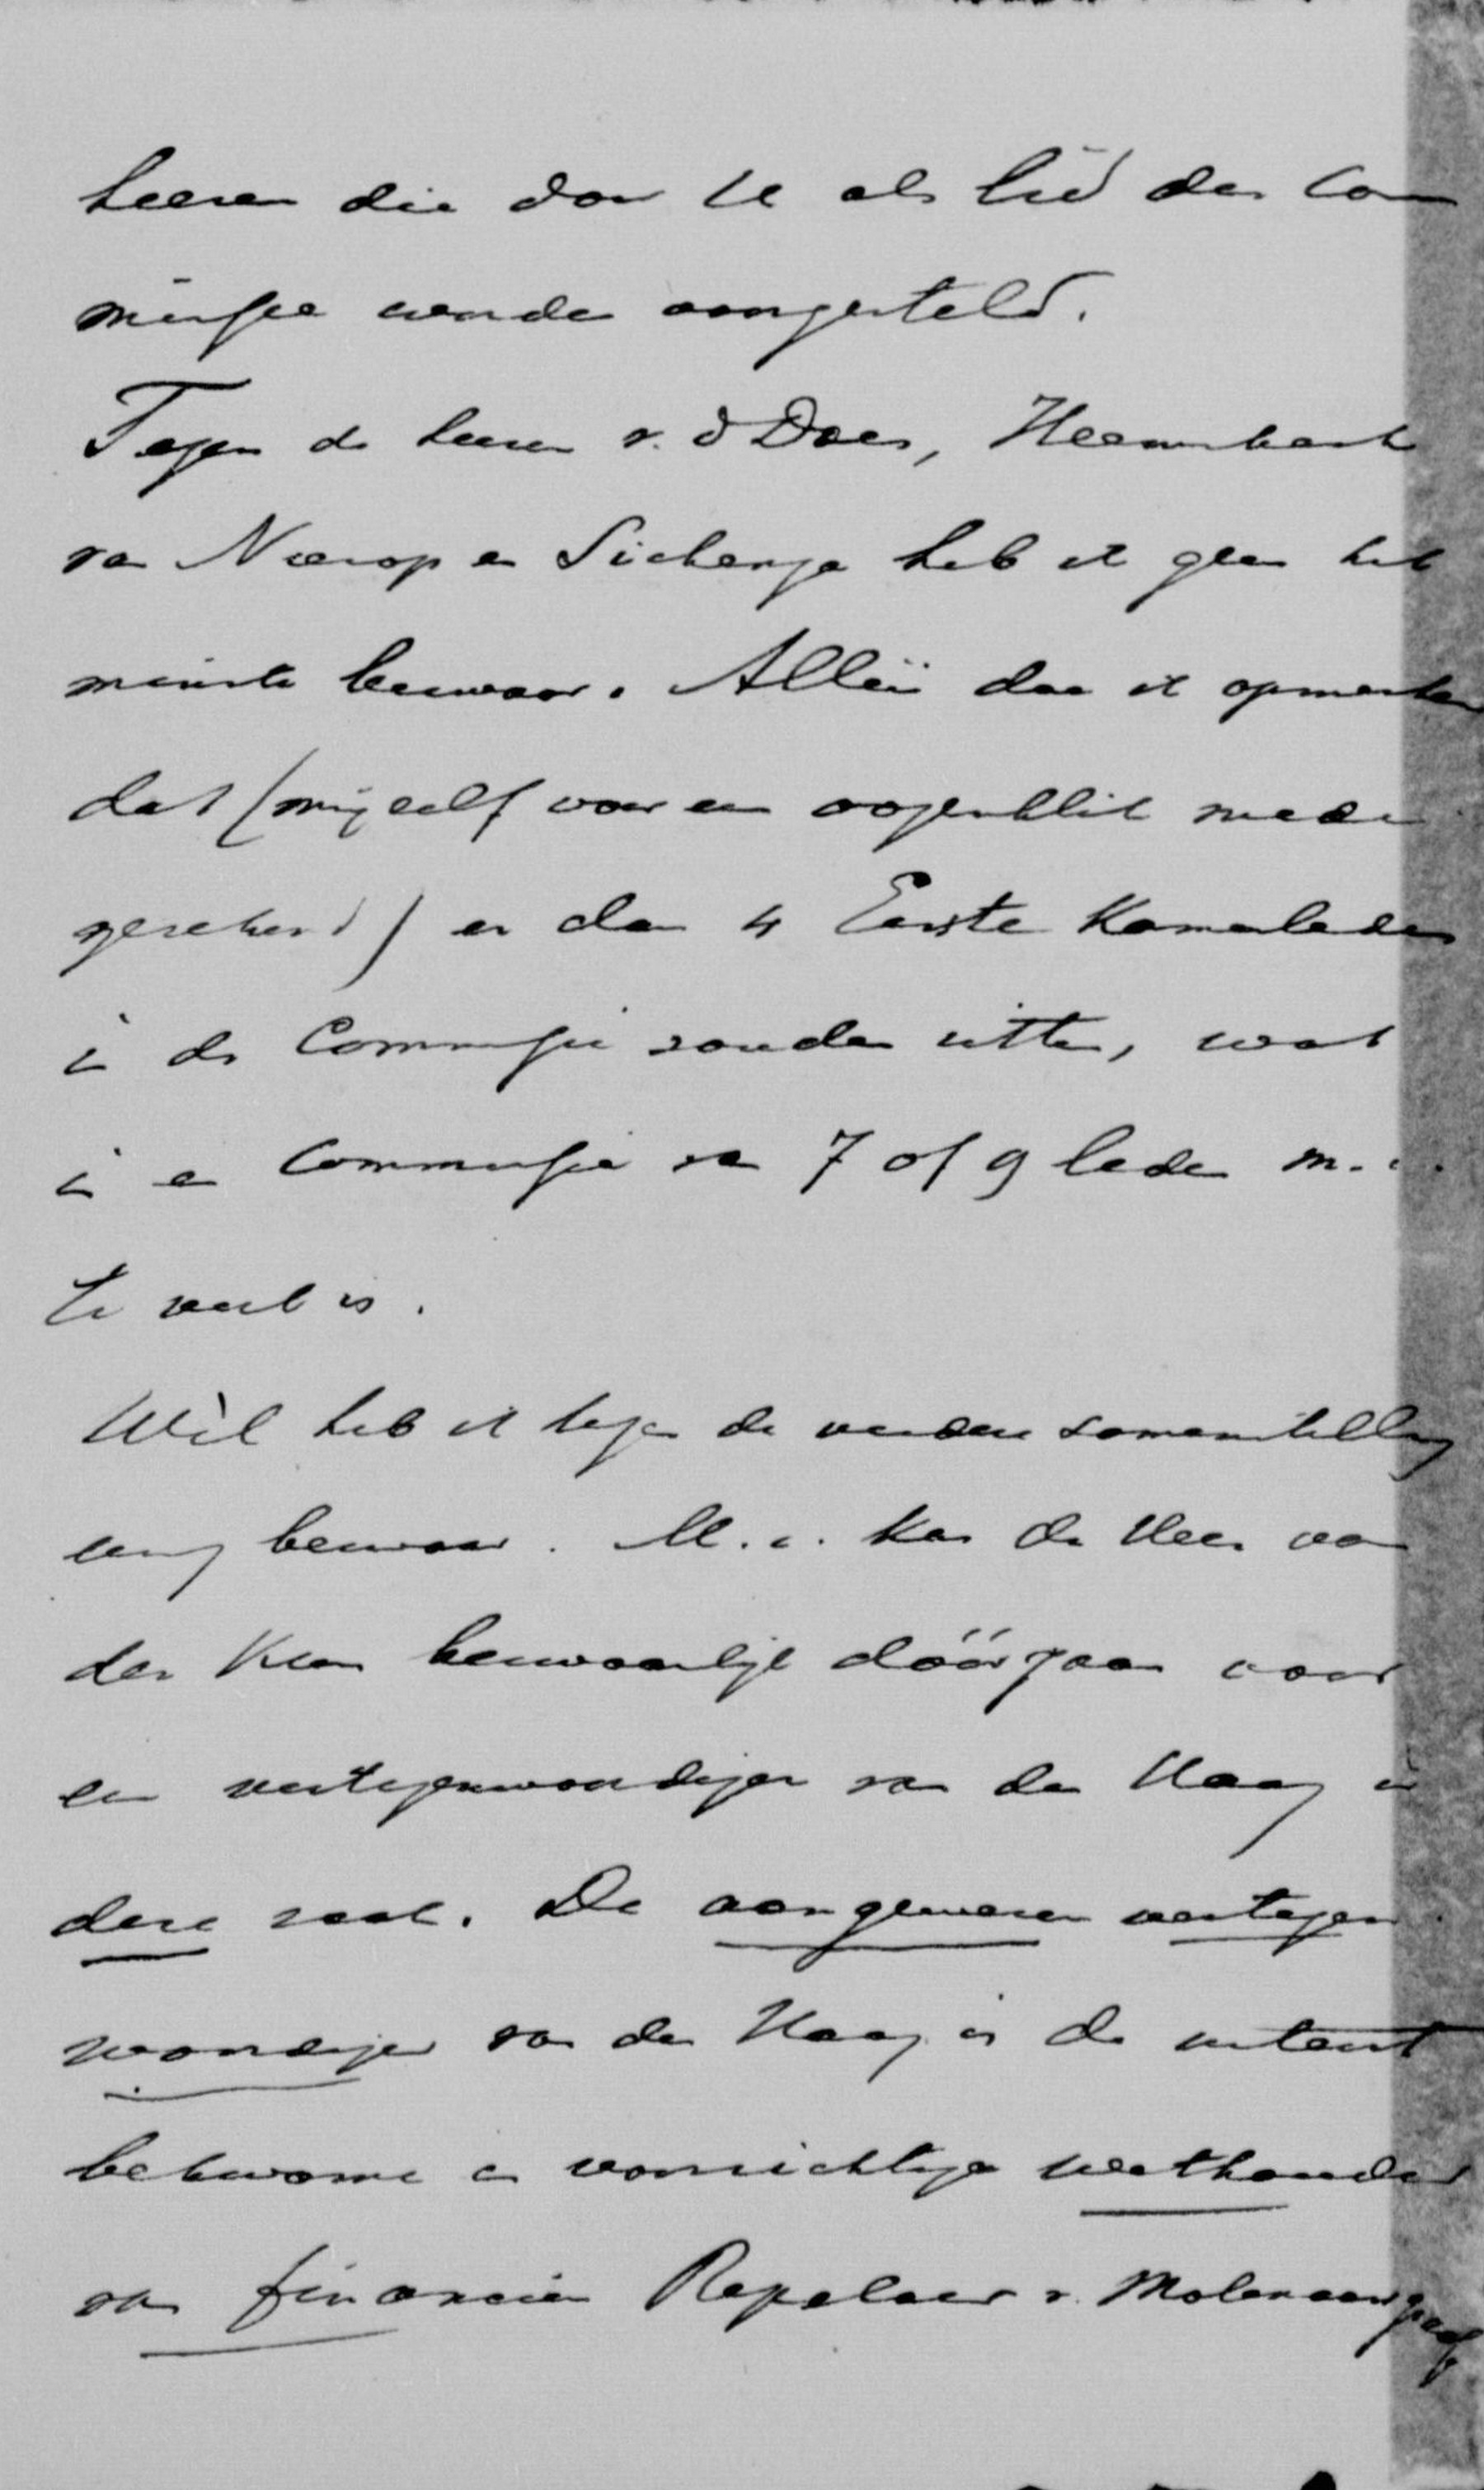 heeren die door U als lid der Com
missie worden aangesteld.
Tegen de heeren v. d Does, Heemskerk
van Nierop en Sickenga heb ik geen het
minste bezwaar. Alléén doe ik opmerken
dat (mijzelf voor een oogenblik mede
gerekend) er dan 4 Eerste Kamerleden
in de Commissie zouden zitten, wat
in een Commissie van 7 of 9 leden m. i.
te veel is.
Wèl heb ik tegen de verdere samenstelling
eenig bezwaar. M. i. kan de Heer van
der Kun bezwaarlijk dóórgaan voor
een vertegenwoordiger van den Haag in
deze zaak. De aangewezen vertegen
woordiger van den Haag is de uiterst
bekwame en voorzichtige wethouder
van financiën Repelaer v. Molenaarsgraaf